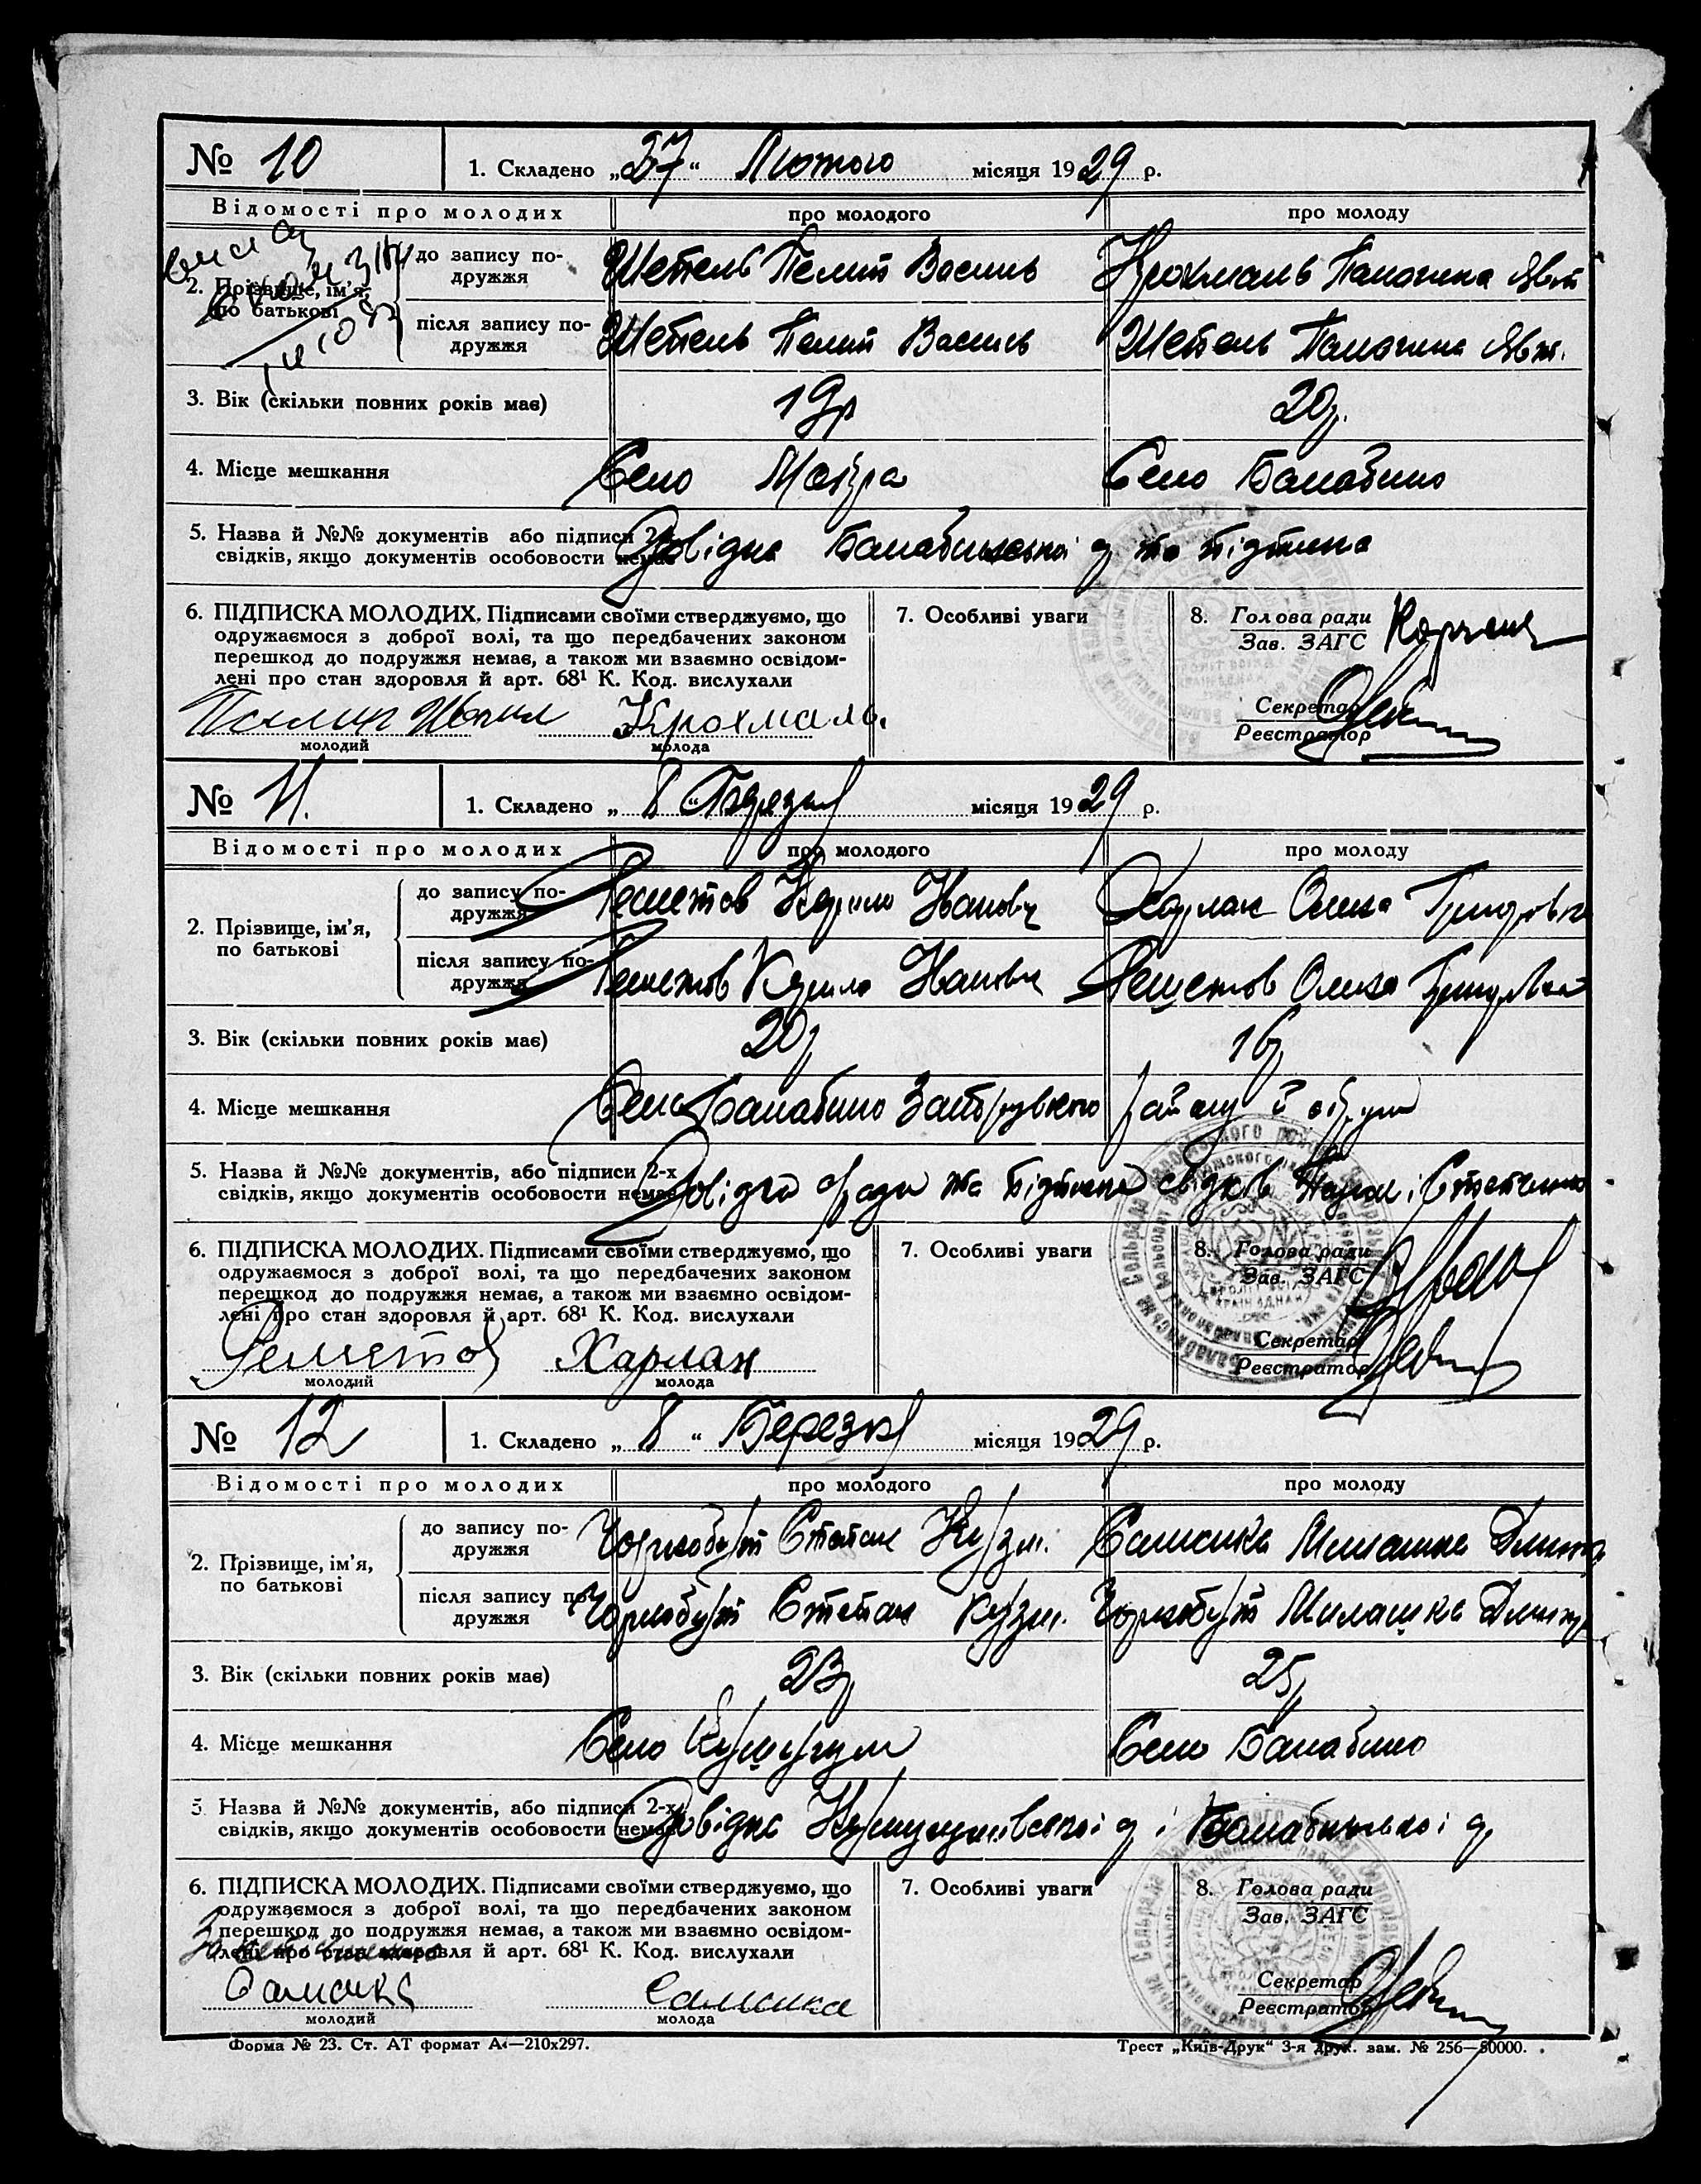 № 10 1. Складено „27“ Лютого місяця 1929 р.
Відомості про молодих про молодого про молоду
2. Прізвище, ім’я, по батькові
до запису подружжя Шепель Василь Крохмаль
після запису подружжя Шепель Шепель
3. Вік (скільки повних років має) 19р 20р.
4. Місце мешкання Село Село Балабино
5. Назва й №№ документів або підписи 2-х
свідків, якщо документів особовости немає Довідка Балабинської та підписка
6. ПІДПИСКА МОЛОДИХ. Підписами своїми стверджуємо, що
одружаємося з доброї волі, та що передбачених законом
перешкод до подружжя немає, а також ми взаємно освідом-
лені про стан здоровля й арт. 68¹ К. Код. вислухали
Крохмаль
молодий молода
7. Особливі уваги
8. Голова ради
Зав. ЗАГС
Секретар
Реєстратор
№ 11. 1. Складено „8“ Березня місяця 1929 р.
Відомості про молодих про молодого про молоду
2. Прізвище, ім’я,
по батькові
до запису по-
дружжя Решетов Кирило Іванович Харлан Олика Григоровна
після запису по-
дружжя Решетов Кирило Іванович Решетов Олика
3. Вік (скільки повних років має) 20р 16р
4. Місце мешкання Село Балабино Запорізького району й округи
5. Назва й №№ документів, або підписи 2-х
свідків, якщо документів особовости немає Довідка с/ради та підписка свідків
6. ПІДПИСКА МОЛОДИХ. Підписами своїми стверджуємо, що
одружаємося з доброї волі, та що передбачених законом
перешкод до подружжя немає, а також ми взаємно освідом-
лені про стан здоровля й арт. 68¹ К. Код. вислухали
Решетов Харлан
молодий молода
7. Особливі уваги
8. Голова ради
Зав. ЗАГС
Секретар
Реєстратор
№ 12 1. Складено „8“ Березня місяця 1929 р.
Відомості про молодих про молодого про молоду
2. Прізвище, ім’я,
по батькові
до запису по-
дружжя Чорнобут Степан Кузм. Самсика Милашка Дмитр
після запису по-
дружжя Чорнобут Степан Кузм. Чорнобут Милашка Дмитр
3. Вік (скільки повних років має) 23р 25р
4. Місце мешкання Село Кушугум Село Балабино
5. Назва й №№ документів, або підписи 2-х
свідків, якщо документів особовости немає Довідка Кушугумівської і Балабинської
6. ПІДПИСКА МОЛОДИХ. Підписами своїми стверджуємо, що
одружаємося з доброї волі, та що передбачених законом
перешкод до подружжя немає, а також ми взаємно освідом-
лені про стан здоровля й арт. 68¹ К. Код. вислухали
Самсика Самсика
молодий молода
7. Особливі уваги
8. Голова ради
Зав. ЗАГС
Секретар
Реєстратор
Форма № 23. Ст. АТ формат А4—210х297. Трест „Київ-Друк“ 3-я друк. зам. № 256—50000.